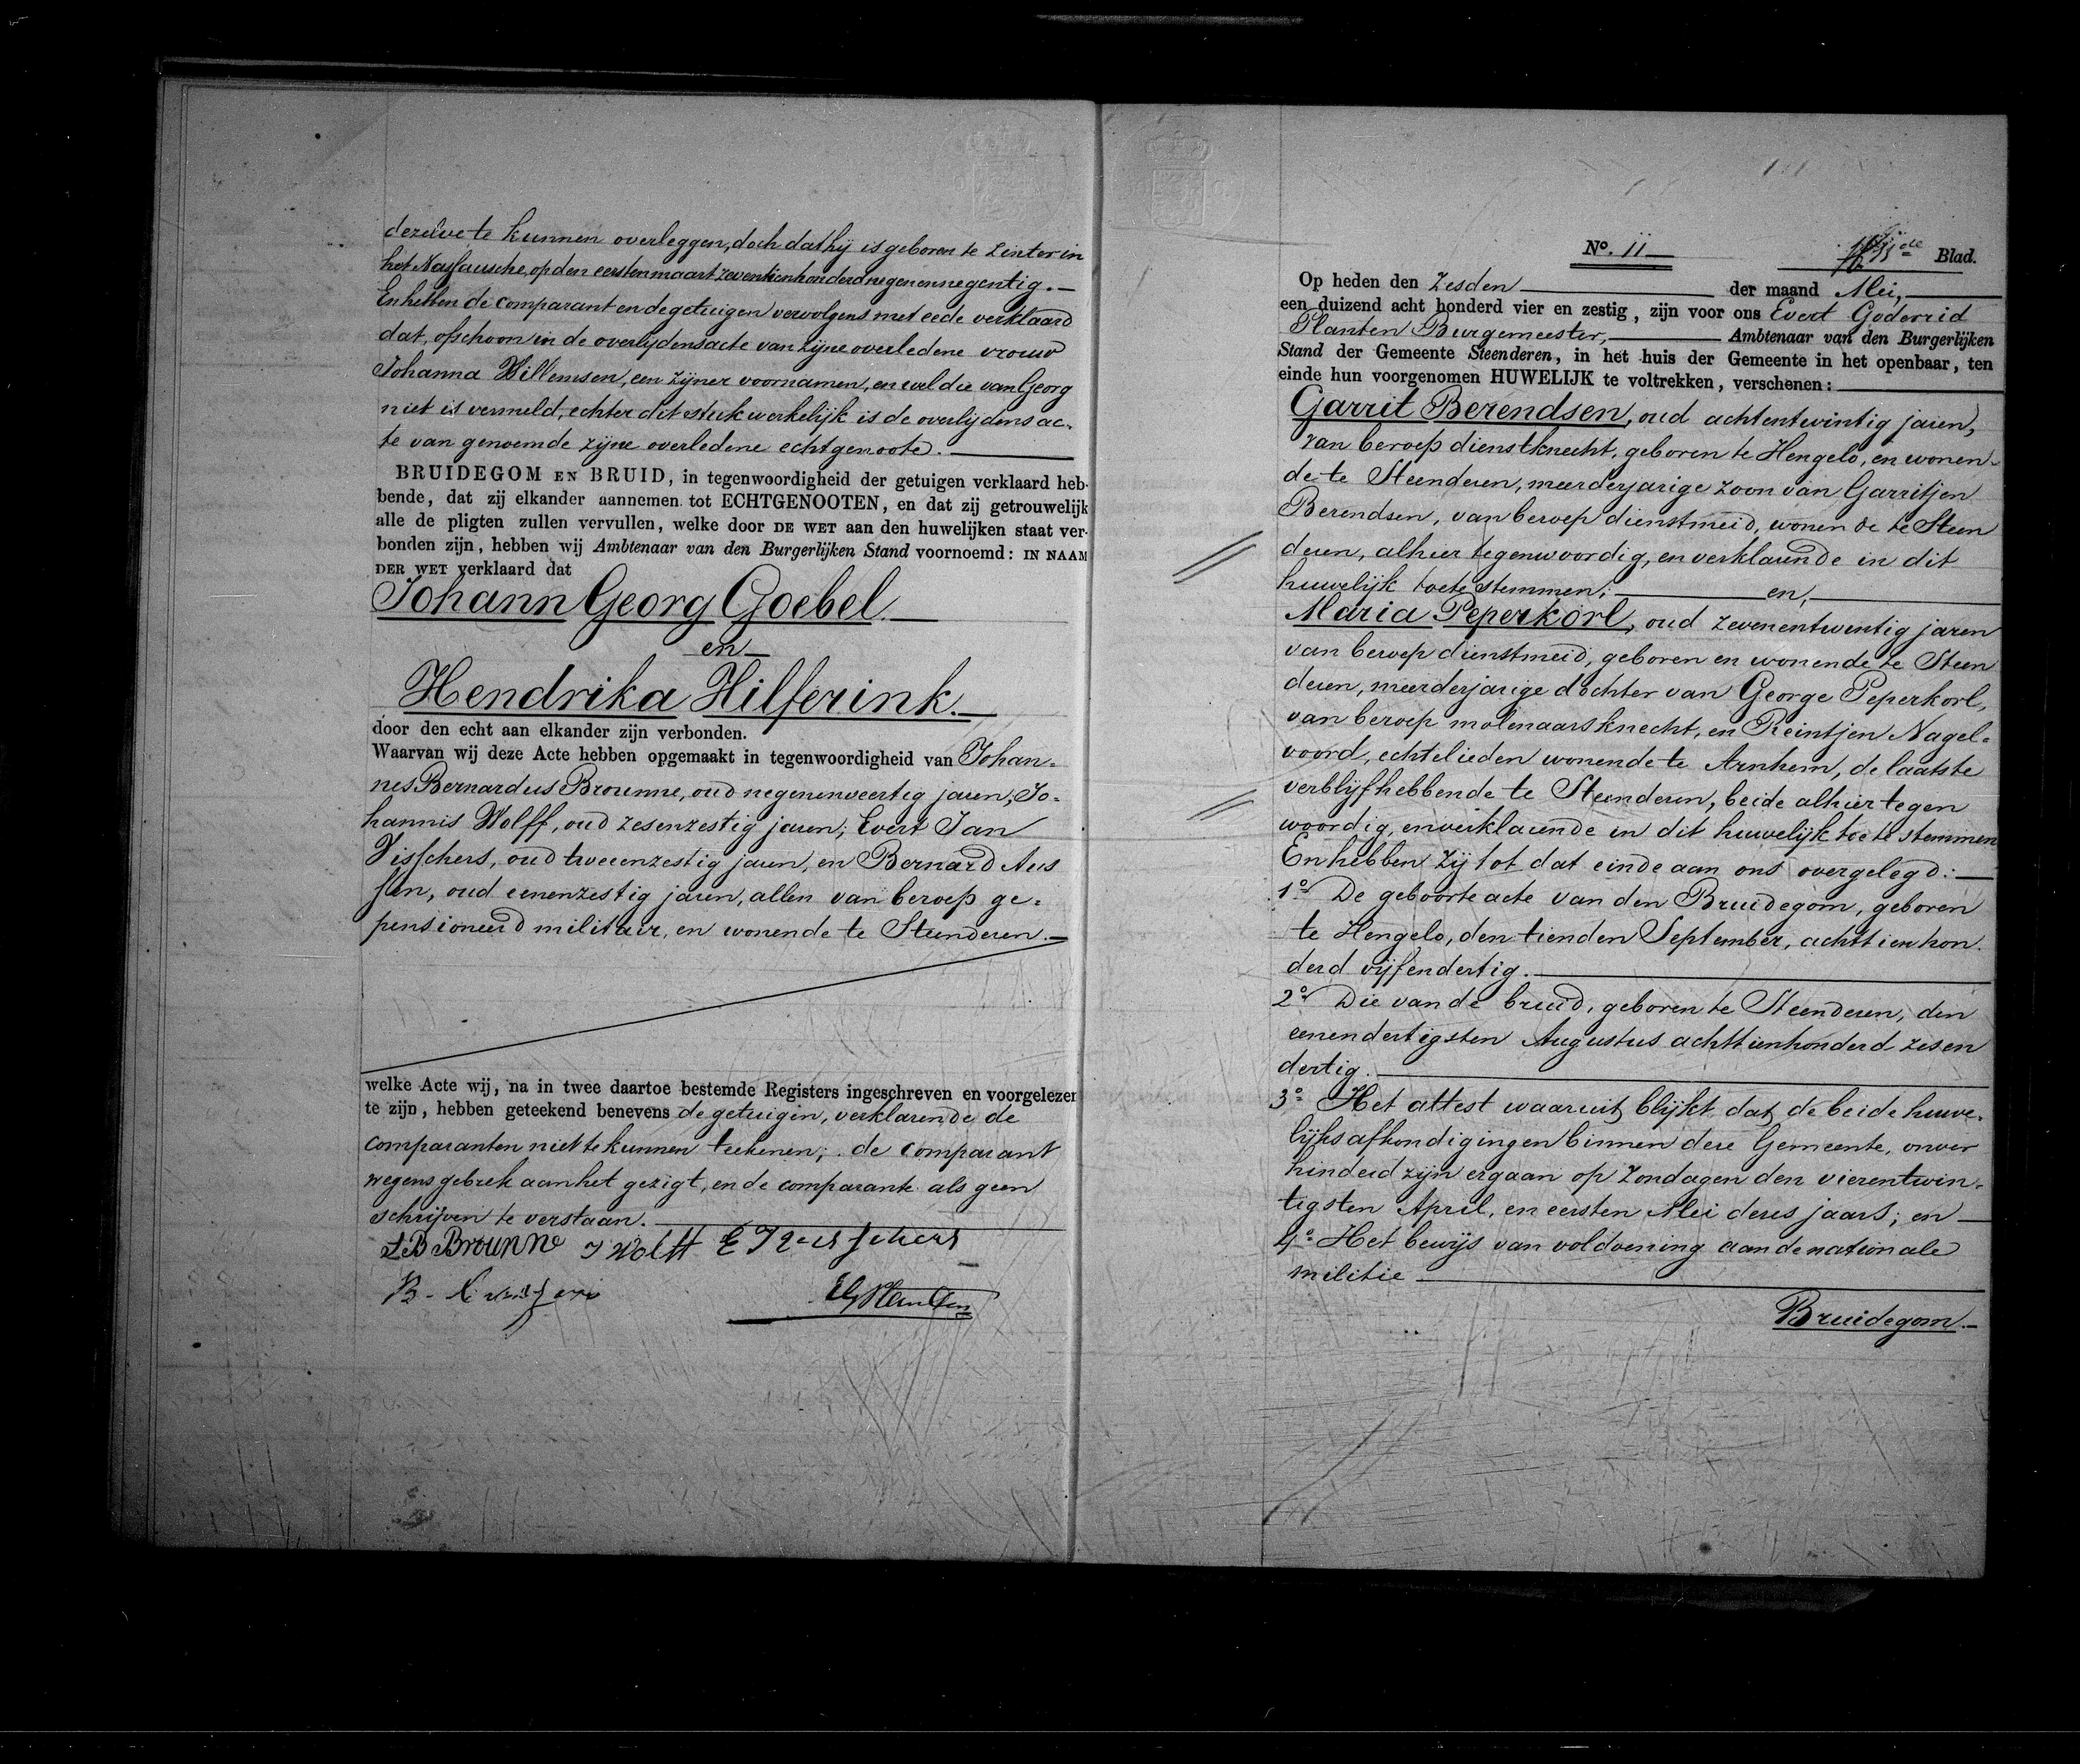 dezelve te kunnen overleggen, doch dat hij is geboren te Zinter in
het Nassausche, op den eersten maart zeventienhonderd negenennegentig. —
En hebben de comparant en de getuigen vervolgens met eede verklaard
dat, ofschoon in de overlijdensacte van zijne overledene vrouw
Johanna Willemsen, een zijner voornamen, en wel die van Georg
niet is vermeld, echter dit stuk werkelijk is de overlijdens ac-
te van genoemde zijne overledene echtgenoote. —
BRUIDEGOM EN BRUID, in tegenwoordigheid der getuigen verklaard heb-
bende, dat zij elkander aannemen tot ECHTGENOOTEN, en dat zij getrouwelijk
alle de pligten zullen vervullen, welke door DE WET aan den huwelijken staat ver-
bonden zijn, hebben wij Ambtenaar van den Burgerlijken Stand voornoemd: IN NAAM
DER WET verklaard dat
Johann Georg Goebel. —
en —
Hendrika Hilferink. —
door den echt aan elkander zijn verbonden.
Waarvan wij deze Acte hebben opgemaakt in tegenwoordigheid van Johan-
nes Bernardus Brounne, oud negenenveertig jaren; Jo-
hannis Wolff, oud zesenzestig jaren; Evert Jan
Visschers, oud tweeenzestig jaren, en Bernard Aus
sen, oud eenenzestig jaren, allen van beroep ge-
pensioneerd militair, en wonende te Steenderen. —
welke Acte wij, na in twee daartoe bestemde Registers ingeschreven en voorgelezen
te zijn, hebben geteekend benevens de getuigen, verklarende de
comparanten niet te kunnen teekenen; de comparant
wegens gebrek aan het gezigt, en de comparante als geen
schrijven te verstaan. —
J B Brounne J Wolff E J Visschers
B. EGPlanten
No. 11 — de Blad.
Op heden den Zesden — der maand Mei, —
een duizend acht honderd vier en zestig, zijn voor ons Evert Goderrid
Planten Burgemeester, — Ambtenaar van den Burgerlijken
Stand der Gemeente Steenderen, in het huis der Gemeente in het openbaar, ten
einde hun voorgenomen HUWELIJK te voltrekken, verschenen: —
Garrit Berendsen, oud achtentwintig jaren,
van beroep dienstknecht, geboren te Hengelo, en wonen-
de te Steenderen, meerderjarige zoon van Garritjen
Berendsen, van beroep dienstmeid, wonende te Steen
deren, alhier tegenwoordig, en verklarende in dit
huwelijk toe te stemmen; — en, —
Maria Peperkorl, oud zevenentwintig jaren
van beroep dienstmeid, geboren en wonende te Steen
deren, meerderjarige dochter van George Peperkorl,
van beroep molenaarsknecht, en Reintjen Nagel-
voord, echtelieden wonende te Arnhem, de laatste
verblijfhebbende te Steenderen, beide alhier tegen
woordig, en verklarende in dit huwelijk toe te stemmen
En hebben zij tot dat einde aan ons overgelegd: —
1o De geboorteacte van den Bruidegom, geboren
te Hengelo, den tienden September, achttienhon-
derd vijfendertig. —
2o Die van de bruid, geboren te Steenderen, den
eenendertigsten Augustus achttienhonderd zesen
dertig. —
3o Het attest waaruit blijkt dat de beide huwe-
lijksafkondigingen binnen dese Gemeente, onver
hinderd zijn ergaan op Zondagen den vierentwin-
tigsten April, en eersten Mei deses jaars; en —
4o Het bewijs van voldoening aan de nationale
militie —
Bruidegom. —